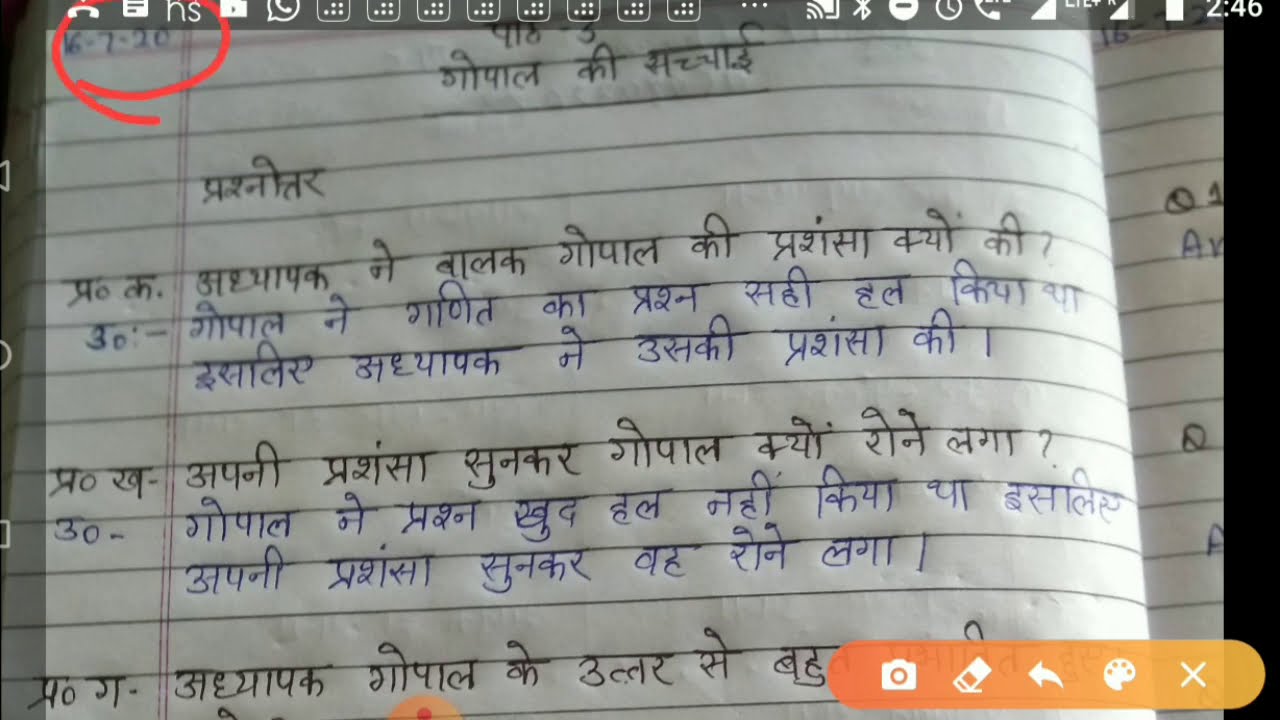 2:46
16-7-20
पाठ -3
गोपाल की सच्चाई
प्रश्नोतर
प्र० क. अध्यापक ने बालक गोपाल की प्रशंसा क्यों की ?
उ०:- गोपाल ने गणित का प्रश्न सही हल किया था
इसलिए अध्यापक ने उसकी प्रशंसा की ।
प्र० ख- अपनी प्रशंसा सुनकर गोपाल क्यों रोने लगा ?
उ०- गोपाल ने प्रश्न खुद हल नहीं किया था इसलिए
अपनी प्रशंसा सुनकर वह रोने लगा ।
प्र० ग- अध्यापक गोपाल के उत्तर से
Q 1
Q